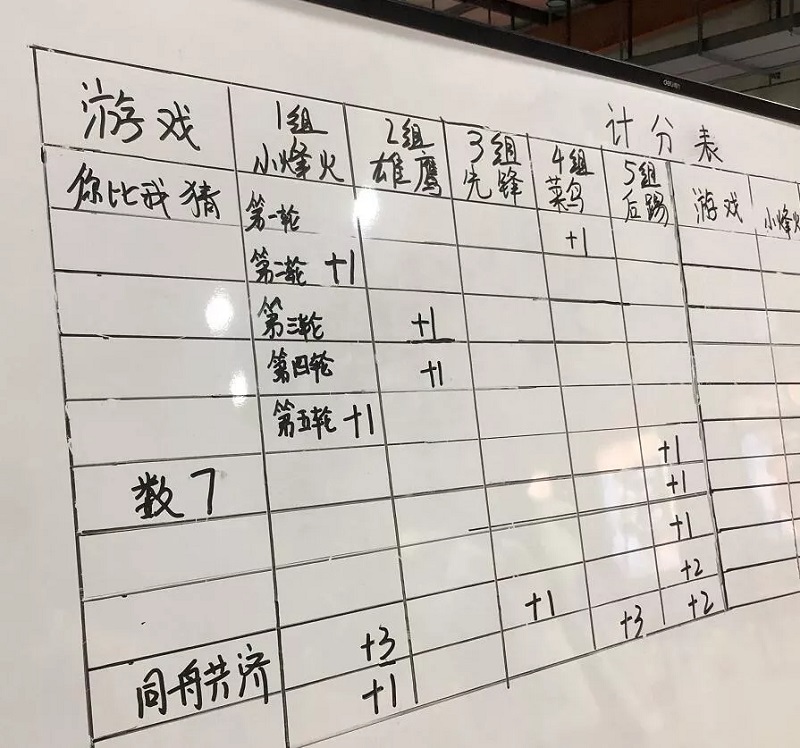 计分表
游戏 1组 2组 3组 4组 5组 游戏 小烽火
小烽火 雄鹰 先锋 菜鸟 后踢
你比我猜 第一轮 +1
第二轮 +1
第三轮 +1
第四轮 +1
第五轮 +1
+1
数7 +1
+1
+2
+1 +3 +2
同舟共济 +3
+1